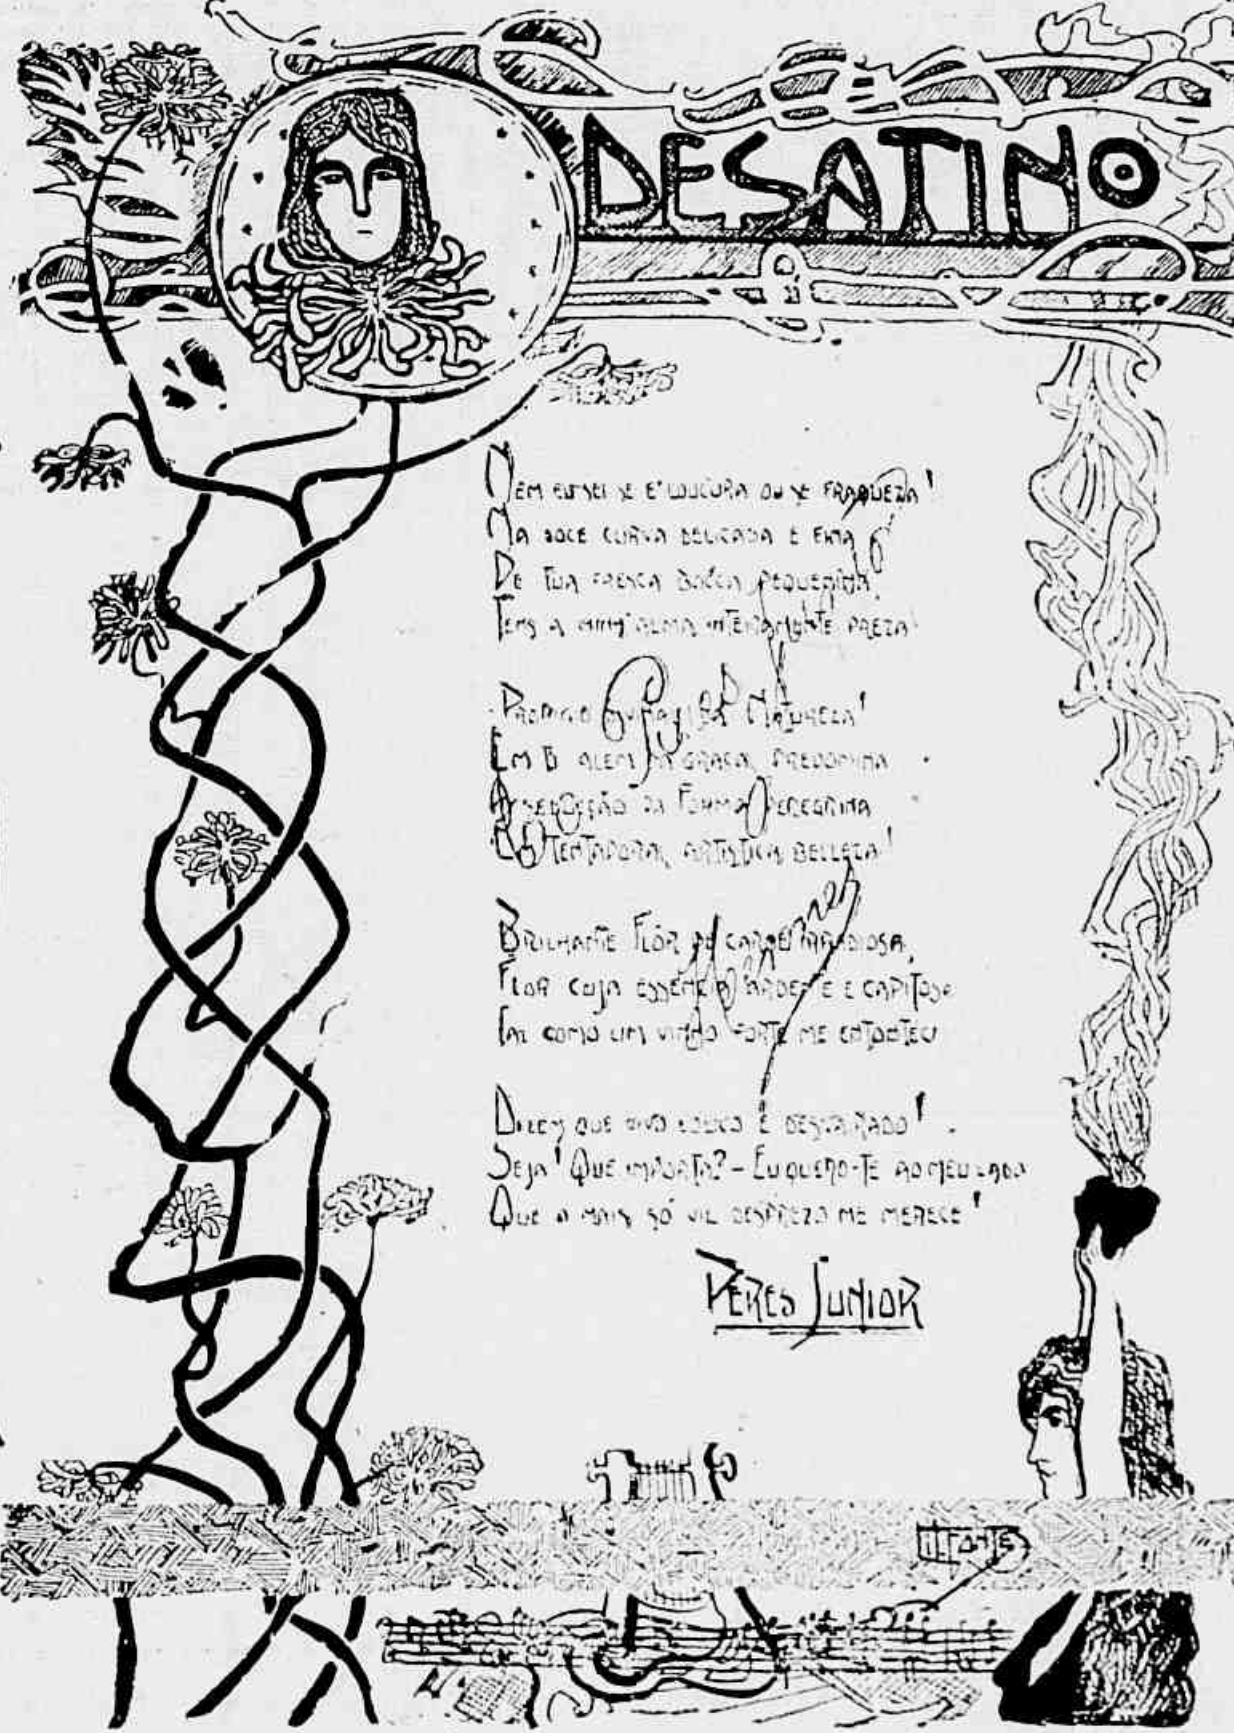 DESATINO
NEM EU SEI SE E' LOUCURA OU SE FRAQUEZA!
NA DOCE CURVA DELICADA E FINA
DE TUA FRESCA BOCCA PEQUENINA,
TENS A MINH'ALMA INTEIRAMENTE PREZA!
DA NATUREZA!
EM TI ALEM DA GRAÇA, PREDOMINA
A SEDUCÇÃO DA FORMA PEREGRINA
TENTADORA, ARTISTICA BELLEZA!
BRILHANTE FLÔR DE CARNE
FLOR CUJA ESSENCIA ARDENTE E CAPITOSA
COMO UM VINHO FORTE ME ENTONTECE
DIZEM QUE VIVO LOUCO E DESVAIRADO!
SEJA! QUE IMPORTA? – EU QUERO-TE AO MEU LADO
QUE O MAIS SÓ VIL DESPREZO ME MERECE!
PERES JUNIOR